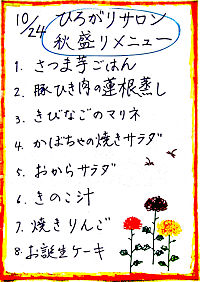 10/24
ひろがりサロン
秋盛りメニュー
1. さつま芋ごはん
2. 豚ひき肉の蓮根蒸し
3. きびなごのマリネ
4. かぼちゃの焼きサラダ
5. おからサラダ
6. きのこ汁
7. 焼きりんご
8. お誕生ケーキ